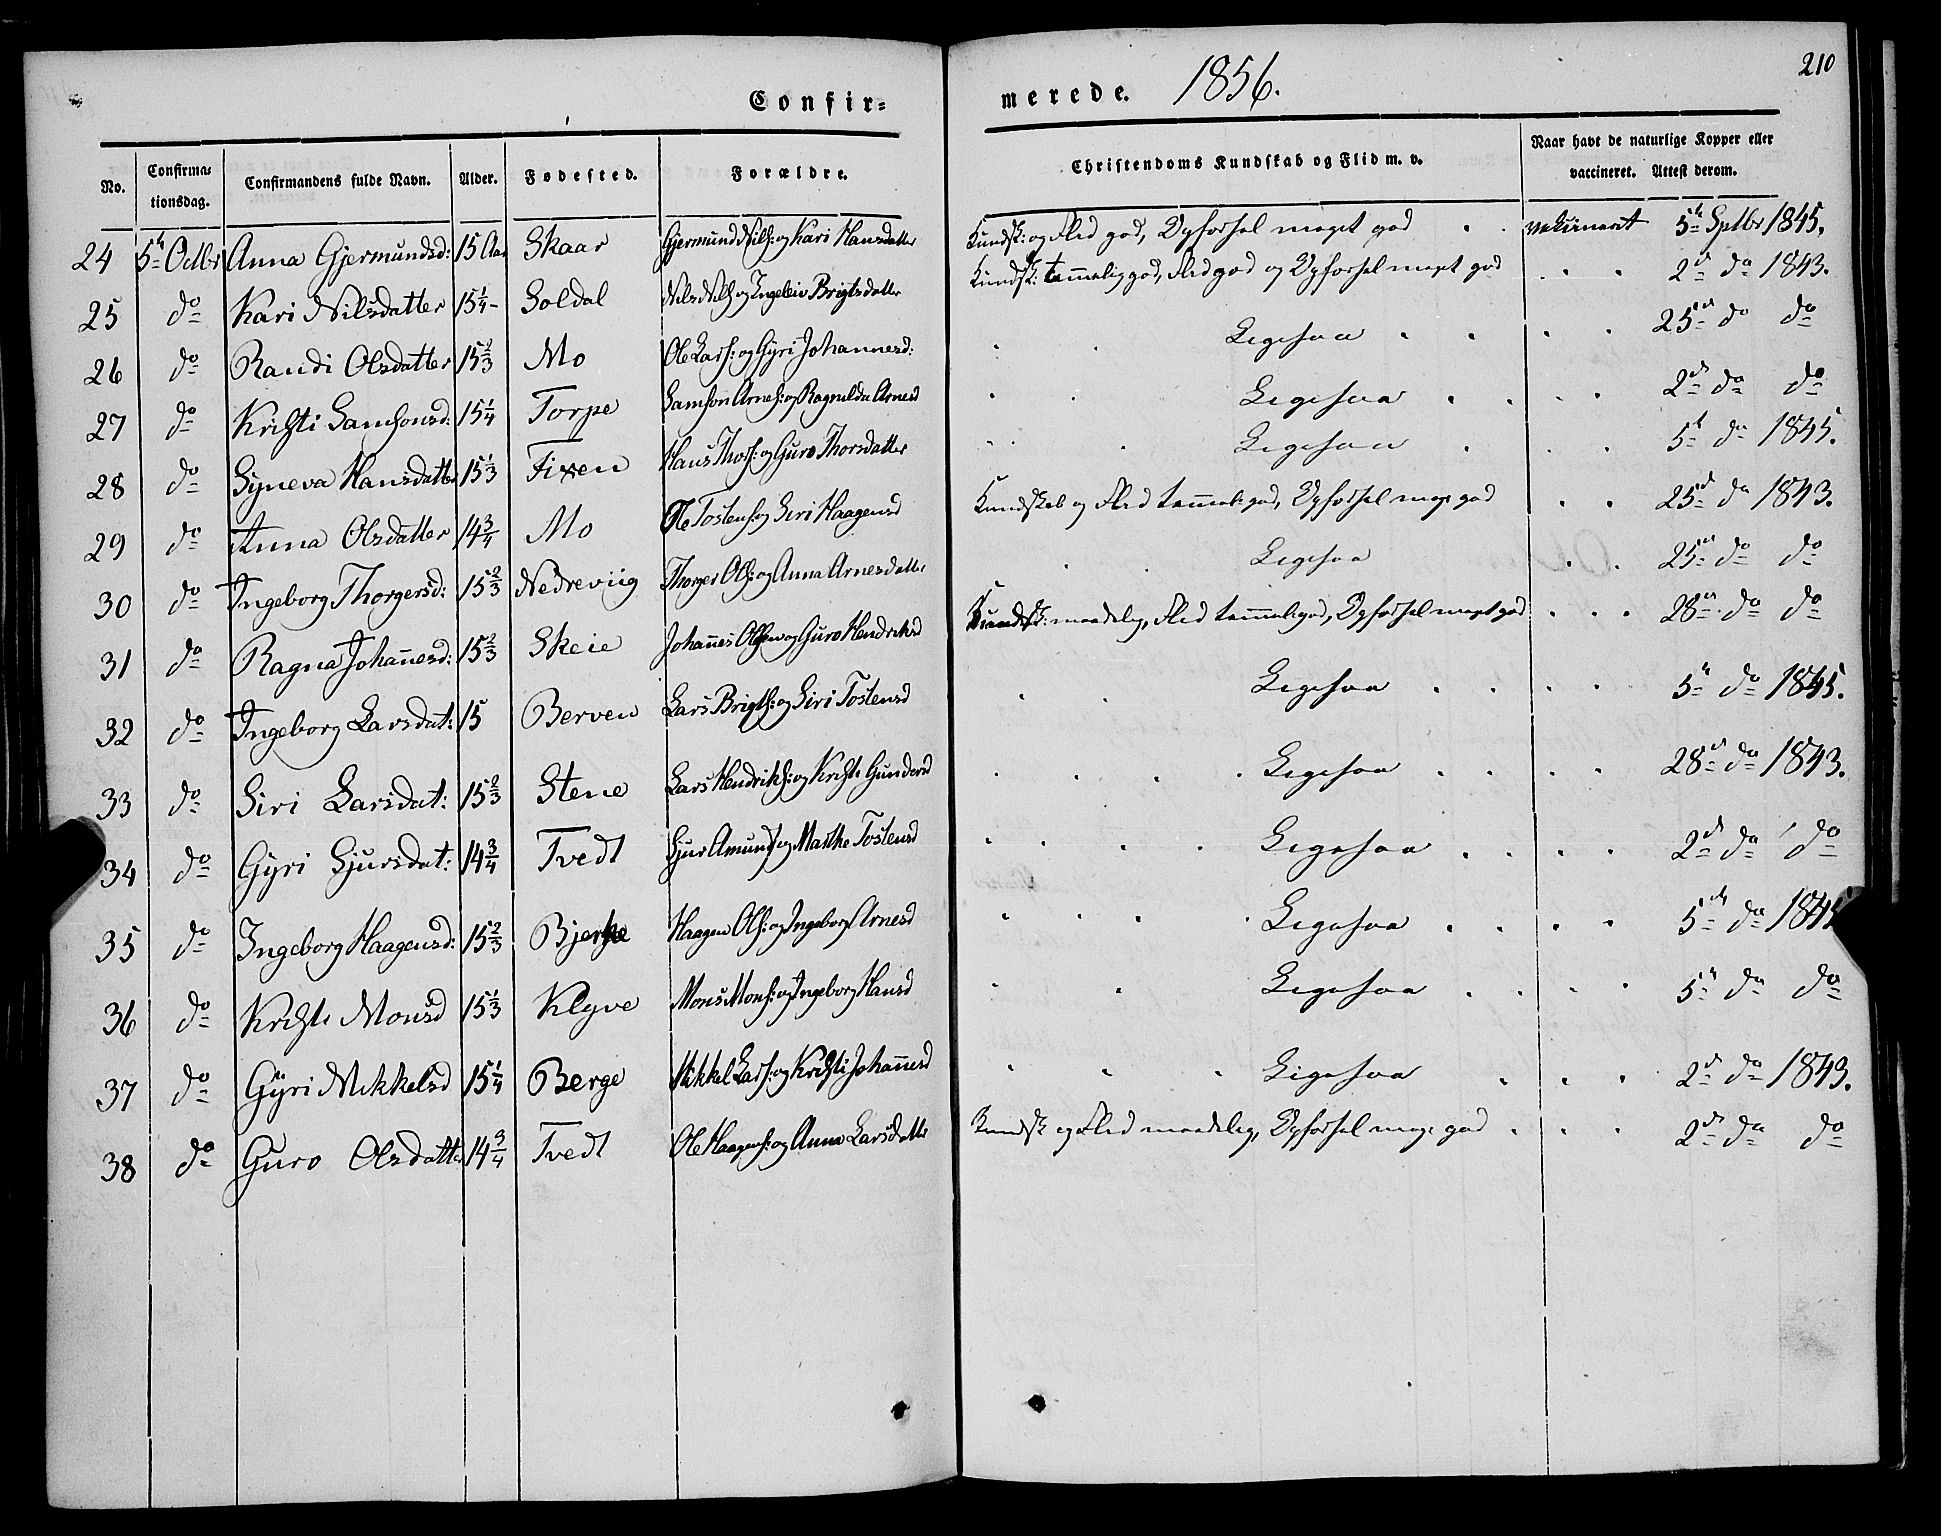 Confir-
merede. 1856.
210
No. Confirmationsdag. Confirmandens fulde Navn. Alder. Fødested. Forældre. Christendoms Kundskab og Flid m. v. Naar havt de naturlige Kopper eller vaccineret. Attest derom.
24 5te Octbr Anna Gjermundsd: 15 Aar Skaar Gjermund Nils: og Kari Hansdatter Kundsk: og Flid god, Opførsel meget god vakcineret 5te Sptbr 1845.
25 do Kari Nilsdatter 15 1/4 - Soldal Nils Nils og Ingeleiv Brigtsdatter Kundsk: temmelig god, Flid god og Opførsel meget god 2den do 1843.
26 do Randi Olsdatter 15 2/3 Mo Ole Lars: og Gyri Johannesd: Ligesaa 25de do do
27 do Kristi Samsonsd: 15 1/4 Torpe Samson Arnes: og Ragnilda Arnesd Ligesaa 2den do do
28 do Syneva Hansdatter 15 1/3 Fixen Hans Thors: og Guro Thorsdatter Ligesaa 5te do 1845.
29 do Anna Olsdatter 14 3/4 Mo Ole Tostens: og Siri Haagensd Kundskab og Flid temmelig god, Opførsel meget god 25de do 1843.
30 do Ingeborg Thorgersd: 15 2/3 Nedreviig Thorger Ols: og Anna Arnesdatter Ligesaa 25de do do
31 do Ragna Johannesd: 15 2/3 Skeie Johannes Olsen og Guro Hendriksd Kundsk: maadelig, Flid temmelig god, Opførsel meget god 28de do do
32 do Ingeborg Larsdat: 15 Berven Lars Brigts: og Siri Tostensd Ligesaa 5te do 1845.
33 do Siri Larsdat: 15 2/3 Stene Lars Hendriks: og Kristi Gundersd Ligesaa 28de do 1843.
34 do Gyri Sjursdat: 14 3/4 Tvedt Sjur Amunds og Marthe Tostensd Ligesaa 2den do do
35 do Ingeborg Haagensd: 15 2/3 Bjerke Haagen Ols: og Ingeborg Arnesd Ligesaa 5te do 1845
36 do Kristi Monsd 15 1/3 Klyve Mons Mons: og Ingeborg Hansd Ligesaa 5te do do
37 do Gyri Mikkelsd 15 1/4 Berge Mikkel Lars: og Kristi Johannesd Ligesaa 2den do 1843.
38 do Guro Olsdatter 14 3/4 Tvedt Ole Haagens: og Anna Larsdatter Kundsk og Flid maadelig, Opførsel meget god 2den do do